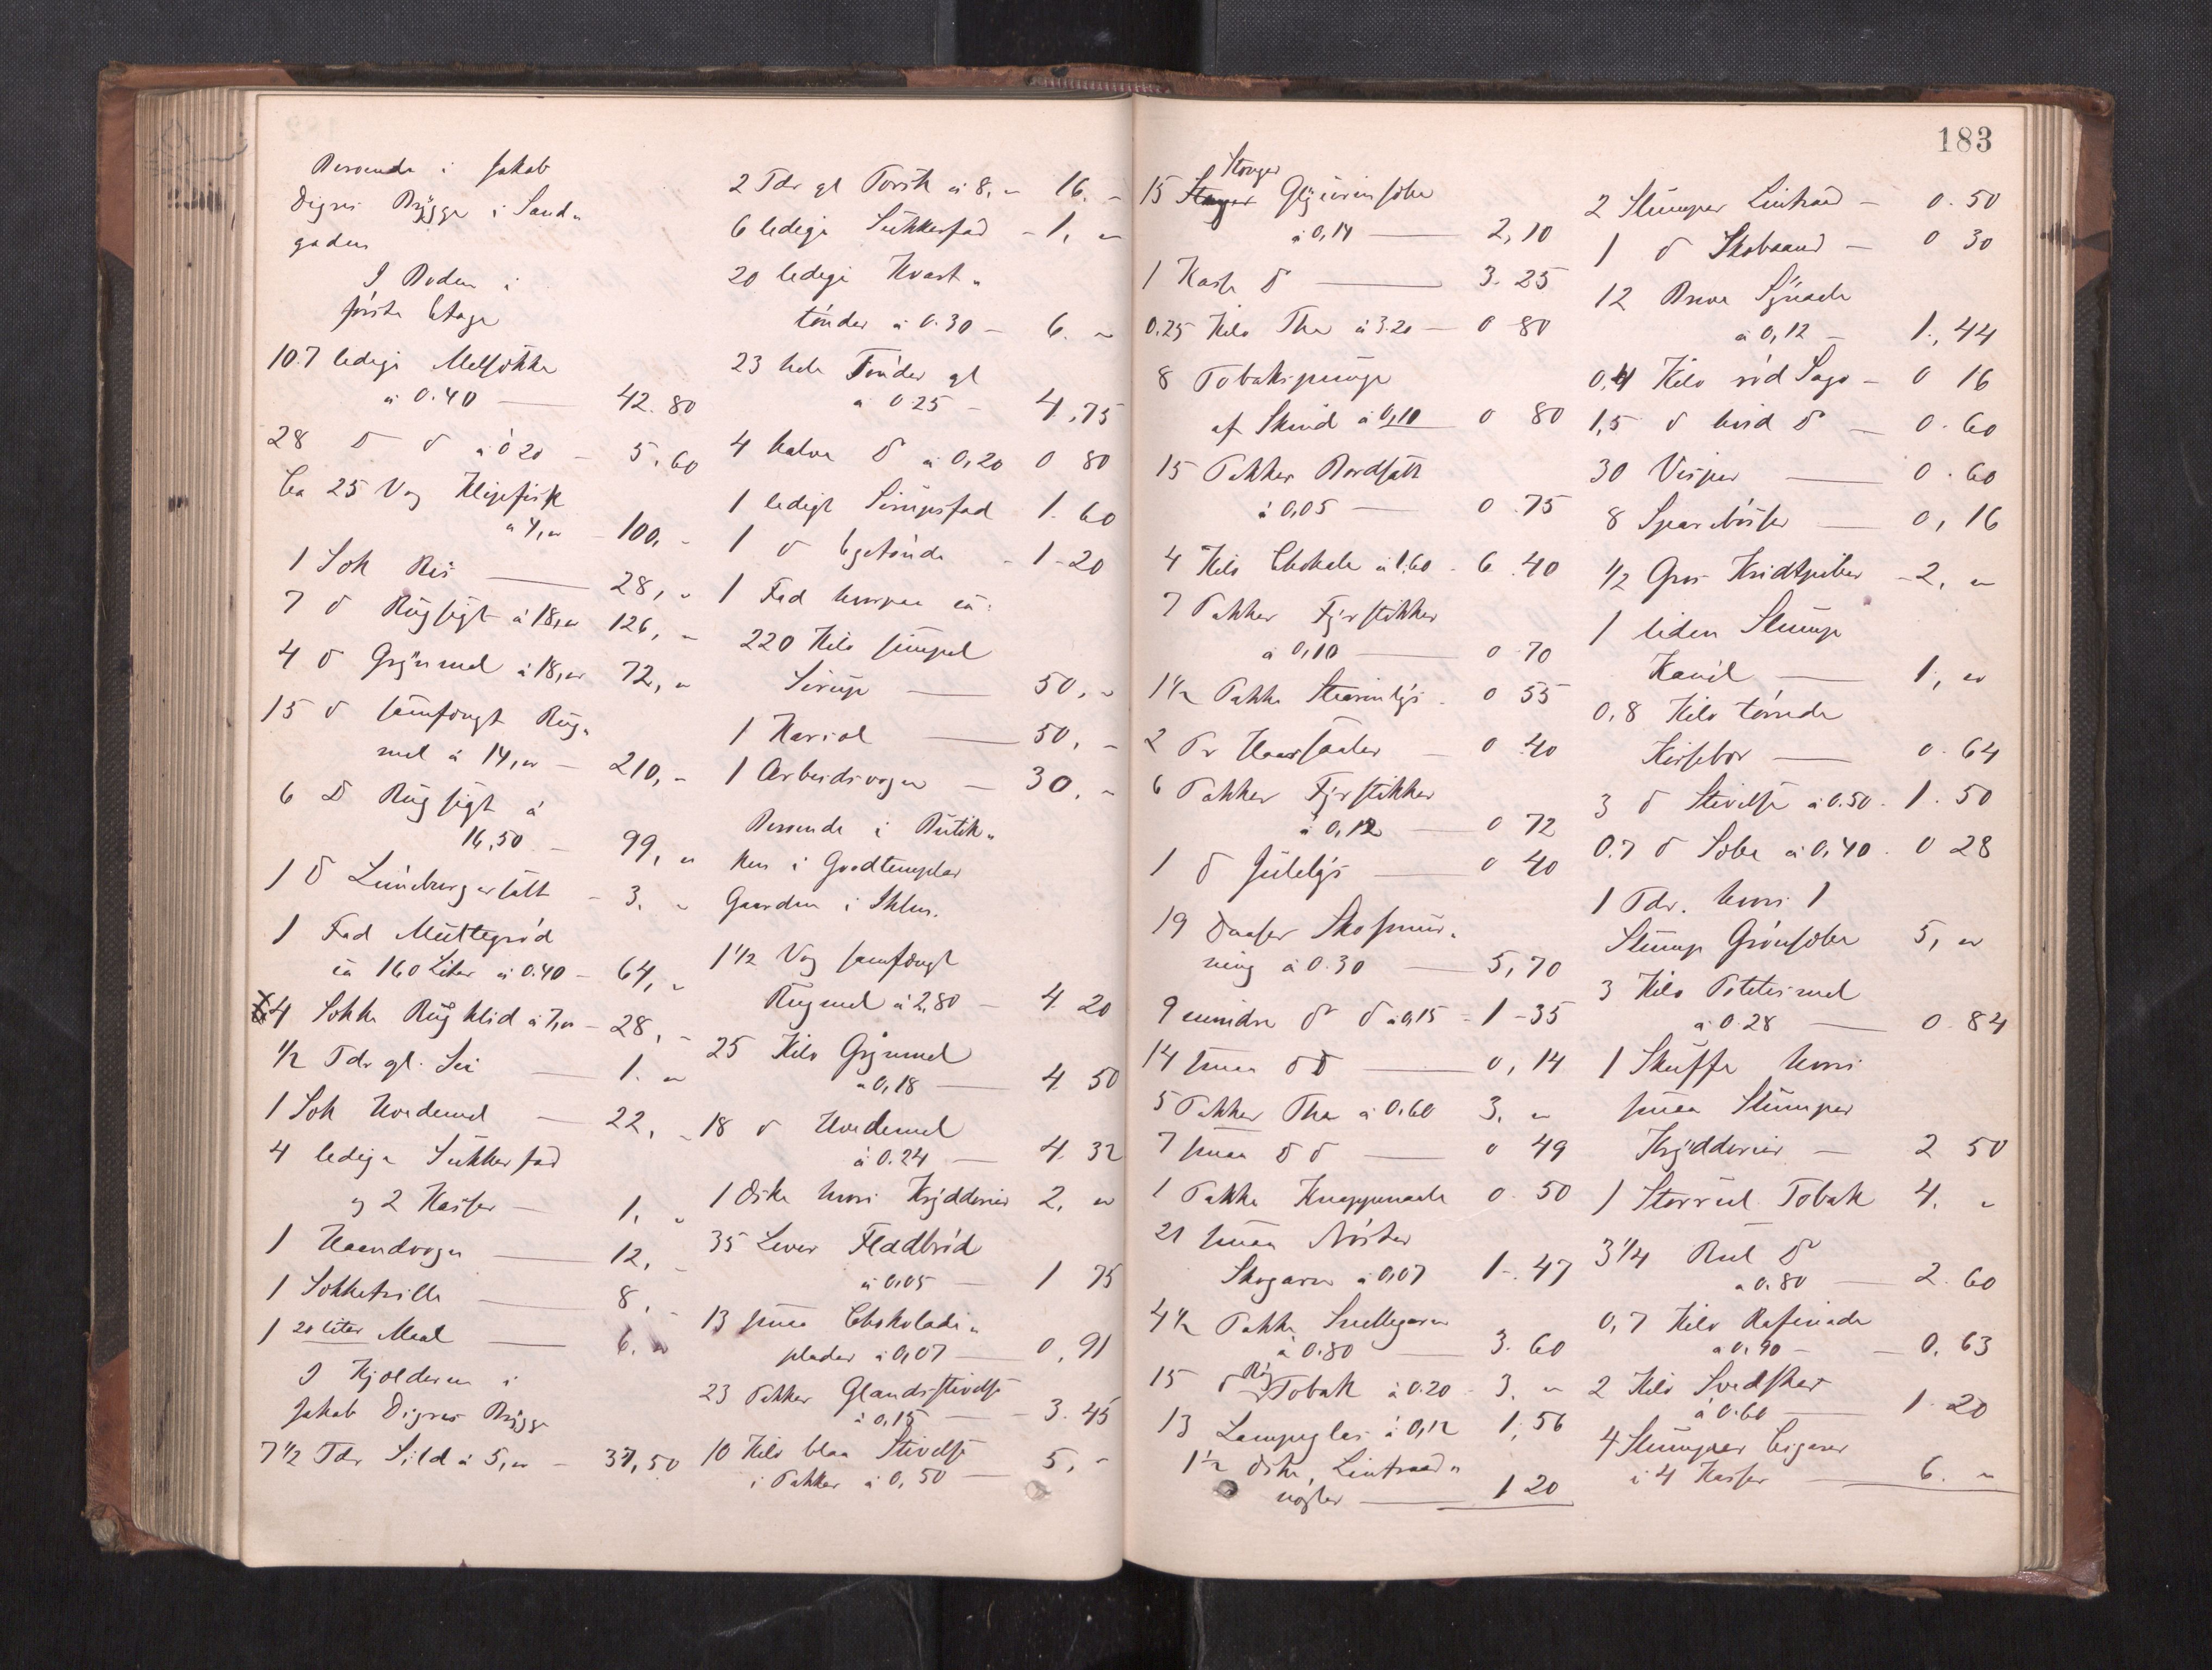 Beroende i Jakob
Digres Brygge i Sand-
gaden
I Boden i
förste Etage
107 ledige Melsække
à 0.40 — 42.80
28 D d à 0 20 - 5.60
Ca 25 Vog Klipfisk
a 4,„ - 100, -
1 Sæk Ris — 28, „
7 d Rugsigt à 18,„ 126, -
4 d Grynmel à 18,„ 72, „
15 d samfængt Rug-
mel à 14,„ - 210, -
6 D Rugsigt à
16,50 - 99, „
1 d Lüneburgersalt - 3. „
1 Fad Multegrød
ca 160 Liter à 0.40 - 64, „
4 Sække Rugklid à 7,„ - 28, -
1/2 Tdr gl. Sei — 1. „
1 Sæk Hvedemel — 22, „
4 ledige Sukkerfad
og 2 Kasser — 1. „
1 Haandvogn — 12, -
1 Sækketrille — 8, -
1 20 liter Maal — 6. „
I Kjælderen i
Jakob Digres Brygge
7 1/2 Tdr Sild à 5,„ - 37,50
2 Tdr gl Torsk à 8,„ 16. -
6 ledige Sukkerfad - 1, „
20 ledige Kvart-
tönder à 0.30 - 6. „
23 hele Tönder gl
à 0.25 - 4,75
4 halve d à 0,20 0 80
1 ledigt Sirupsfad 1.60
1 d Egetönde - 1-20
1 Fad hvorpaa ca:
220 Kilo simpel
Sirup — 50, „
1 Kariol — 50, -
1 Arbeidsvogn — 30. „
Beroende i Butik-
ken i Goodtemplar
Gaarden i Sthlm.
1 1/2 Vog samfængt
Rugmel à 2,80 - 4 20
25 Kilo Grynmel
a 0,18 — 4. 50
18 d Hvedemel
à 0.24 — 4. 32
1 Æske hvori Krydderier 2. „
35 Lever Fladbröd
à 0,05 - 1 75
13 smaa Chokolade-
plader à 0,07 — 0,91
23 Pakker Glandsstivelse
à 0,15 — 3.45
10 Kilo blaa Stivelse
i Pakker à 0,50 — 5, -
183
Stænger
15 Glycerinsæbe
à 0,14 — 2,10
1 Kasse d — 3.25
0.25 Kilo The à 3.20 — 0 80
8 Tobakspunge
af Skind à 0,10 0 80
15 Pakker Bordsalt
à 0,05 — 0.75
4 Kilo Chokolade à 1.60 - 6.40
7 Pakker Fyrstikker
à 0,10 — 0.70
1 1/2 Pakke Stearinlys - 0 55
2 Pr Haarsaaler — 0.40
6 Pakker Fyrstikker
à 0,12 — 0 72
1 d Julelys — 0 40
19 Daaser Skosmør-
ning à 0.30 — 5,70
9 mindre d d à 0,15 - 1-35
14 smaa d d — 0,14
5 Pakker The à 0.60 3. „
7 smaa d d — 0 49
1 Pakke Knappenaale 0.50
21 smaa Nøster
Skogarn à 0,07 1-.47
4 1/2 Pakke Snellegarn
à 0.80 — 3.60
15 d Røg Tobak à 0.20 - 3. „
13 Lampeglas à 0,12 1,56
1 1/2 Æske, Lintraad-
nøgler — 1 20
2 Stumper Lintraad - 0.50
1 d Skobaand — 0 30
12 Breve Synaale
à 0,12 — 1,44
0,4 Kilo rød Sago - 0 16
1,5 d hvid d — 0.60
30 Visper — 0.60
8 Sparebøsser — 0,16
1/2 Gros Kridtpiber - 2. „
1 liden Stump
Kanel — 1, „
0,8 Kilo tørrede
Kirsebær — 0.64
3 d Stivelse à 0.50 - 1.50
0.7 d Sæbe à 0,40 - 0 28
1 Tdr. hvori 1
Stump Grønsæbe 5, „
3 Kilo Potetesmel
à 0.28 — 0.84
1 Skuffe hvori
smaa Stumper
Krydderier — 2 50
1 Storrul Tobak 4. „
3 1/4 Rul d
a 0.80 — 2.60
0,7 Kilo Rafinade
a 0.90 — 0.63
2 Kilo Svedsker
à 0.60 — 1.20
4 Stumper Cigarer
i 4 Kasser — 6. „